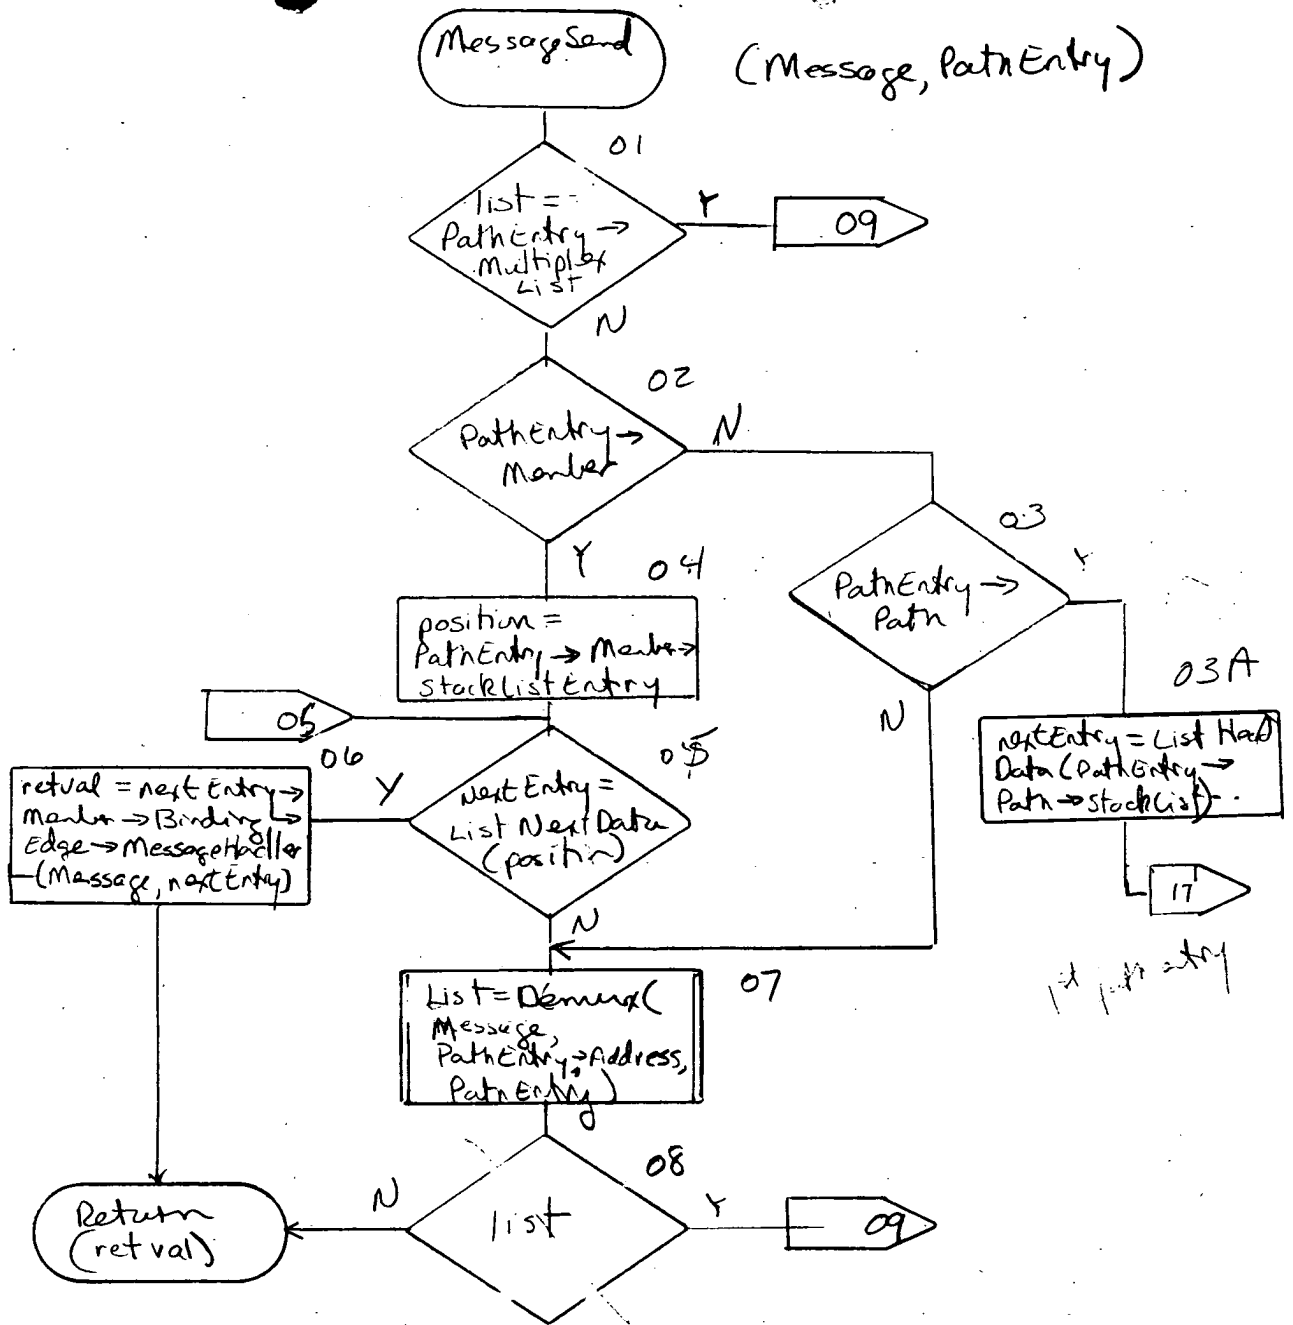 MessageSend
(Message, PathEntry)
01
list =
PathEntry →
Multiplex
List
Y
09
N
02
PathEntry →
Member
N
Y
03
PathEntry →
Path
Y
N
04
position =
PathEntry → Member →
StackListEntry
03A
nextEntry = List Head
Data (PathEntry →
Path → StackList)
17
1st path entry
05
05
NextEntry =
List NextData
(position)
Y
N
06
retval = nextEntry →
Member → Binding →
Edge → MessageHadler
(Message, nextEntry)
07
List = Demux(
Message,
PathEntry → Address,
PathEntry)
08
list
N
Y
09
Return
(retval)